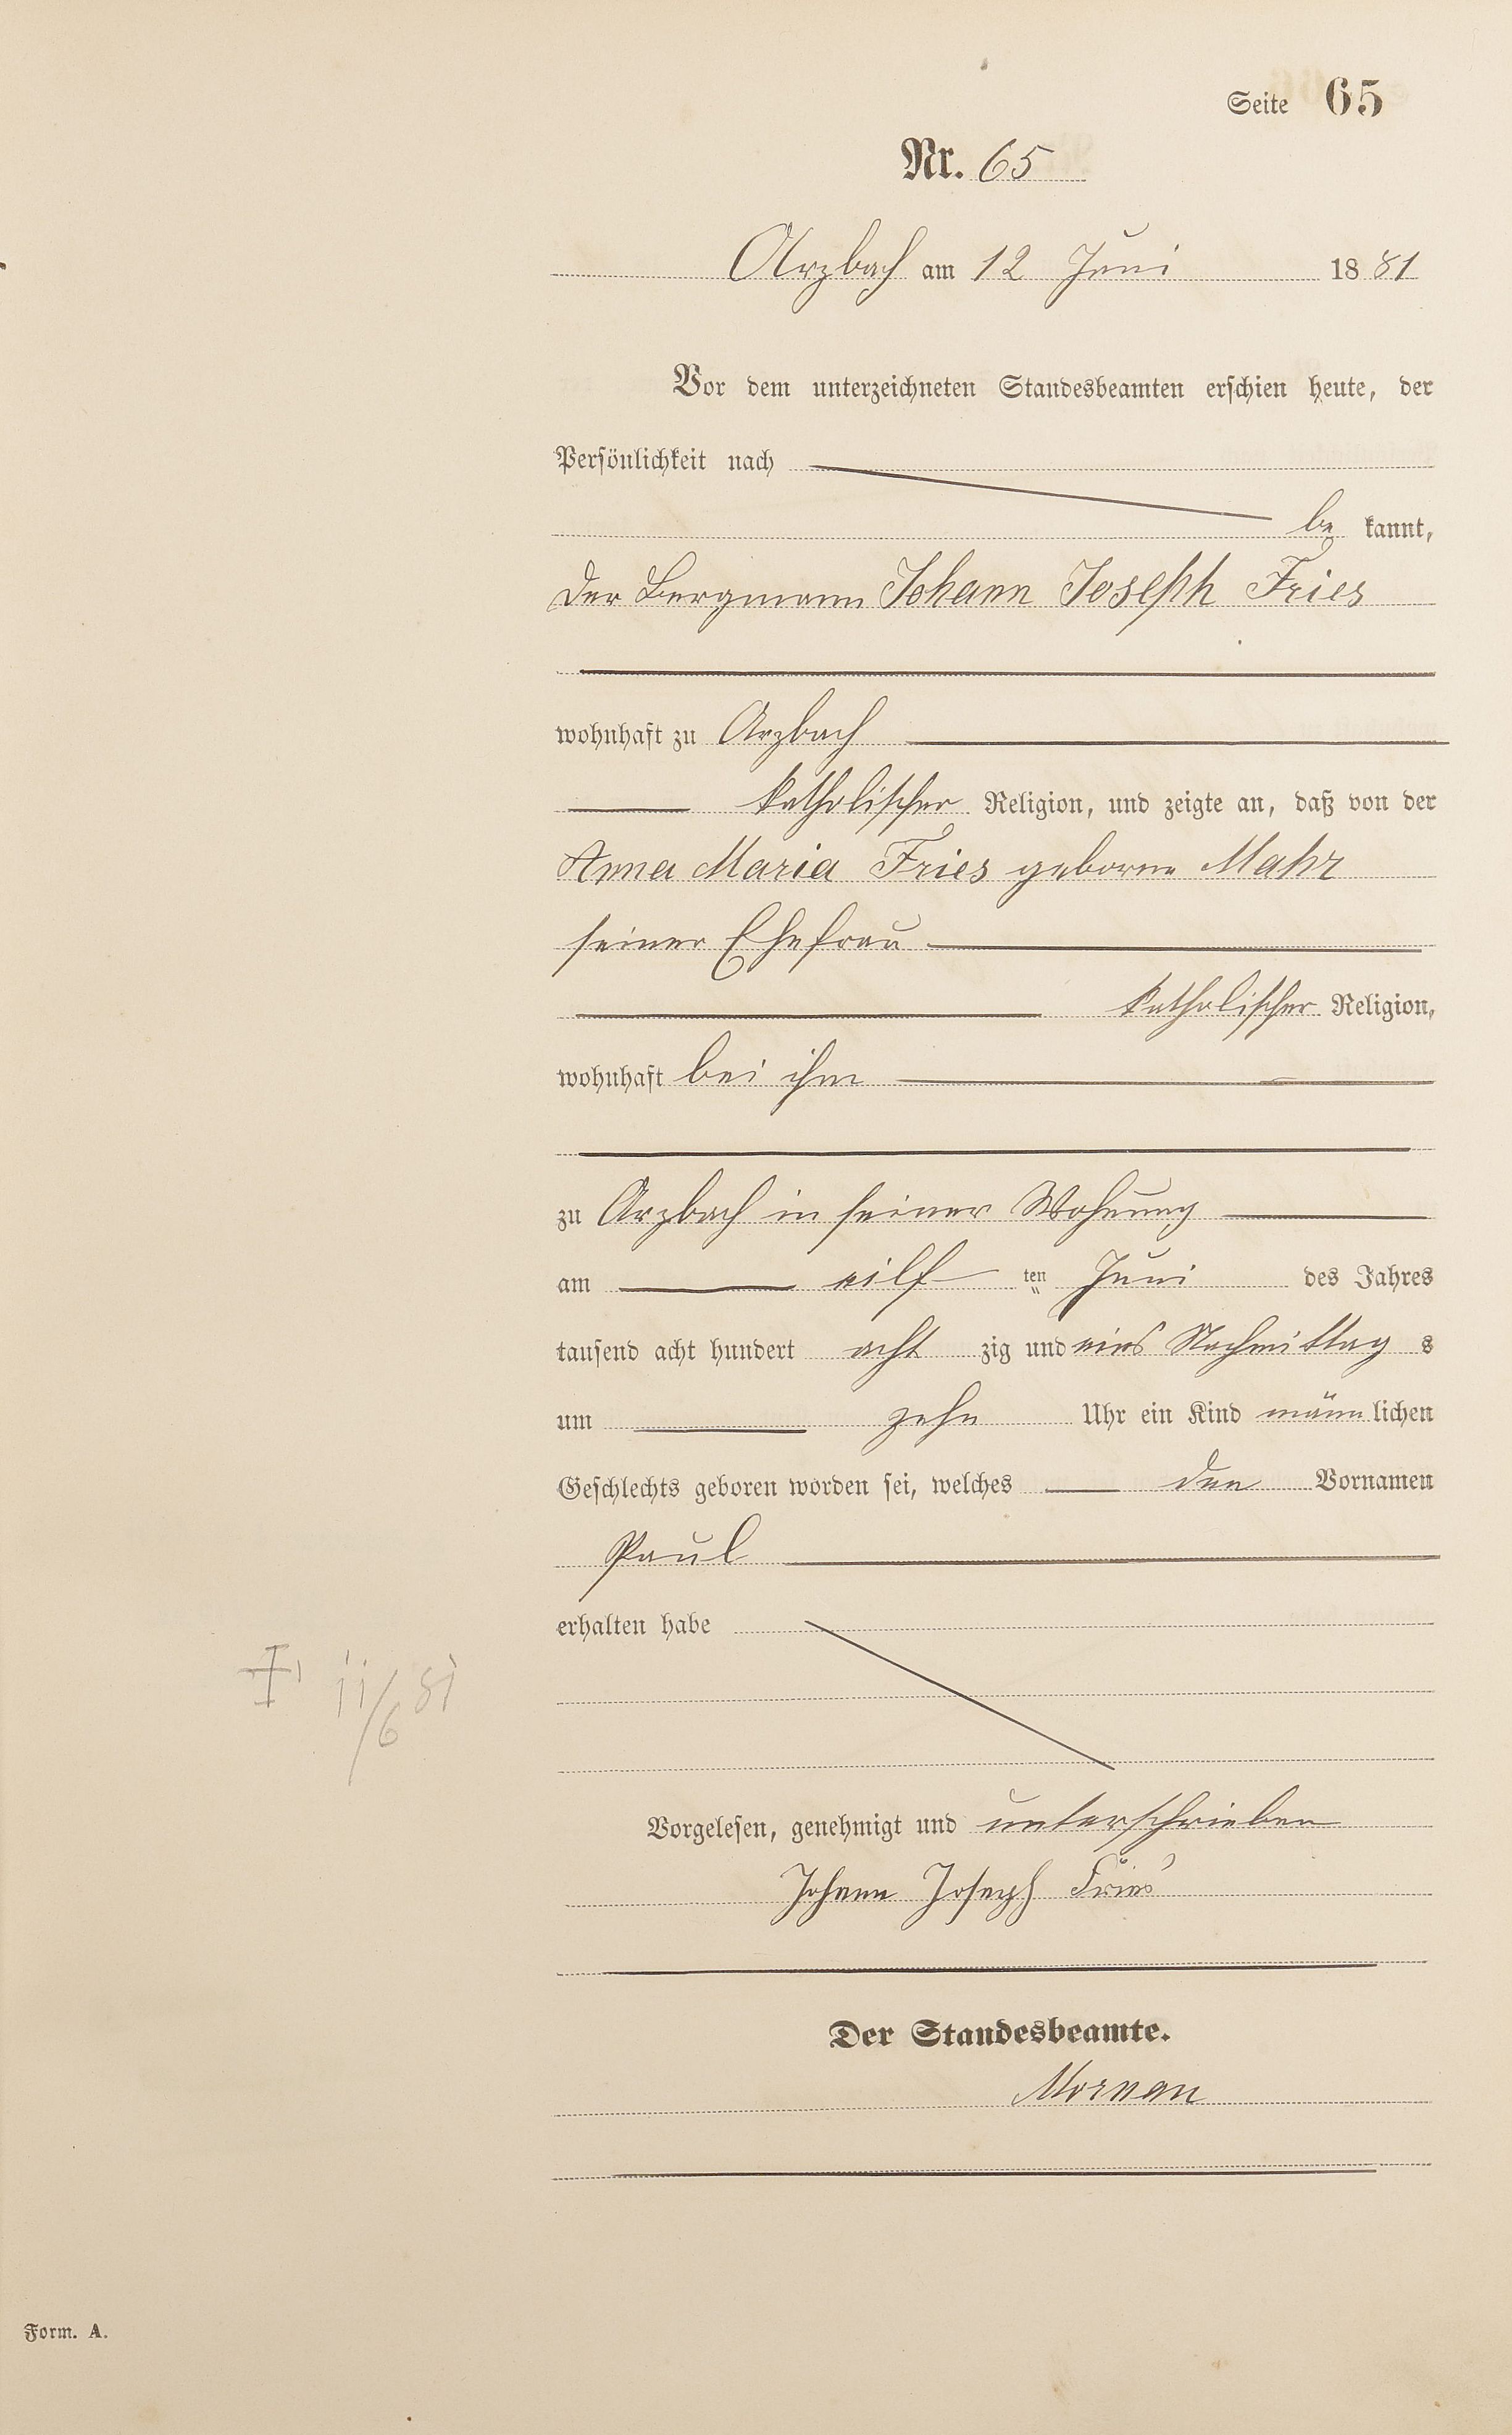 Seite 65
Nr. 65
Arzbach am 12 Juni 1881
Vor dem unterzeichneten Standesbeamten erschien heute, der
Persönlichkeit nach
be kannt,
der Bergmann Johann Joseph Fries
wohnhaft zu Arzbach
katholischer Religion, und zeigte an, daß von der
Anna Maria Fries geborne Mahr
seiner Ehefrau
katholischer Religion,
wohnhaft bei ihm
zu Arzbach in seiner Wohnung
am eilf ten Juni des Jahres
tausend acht hundert acht zig und eins Nachmittag s
um zehn Uhr ein Kind männlichen
Geschlechts geboren worden sei, welches den Vornamen
Paul
erhalten habe
11/6 81
Vorgelesen, genehmigt und unterschrieben
Johann Joseph Fries
Der Standesbeamte.
Form. A.